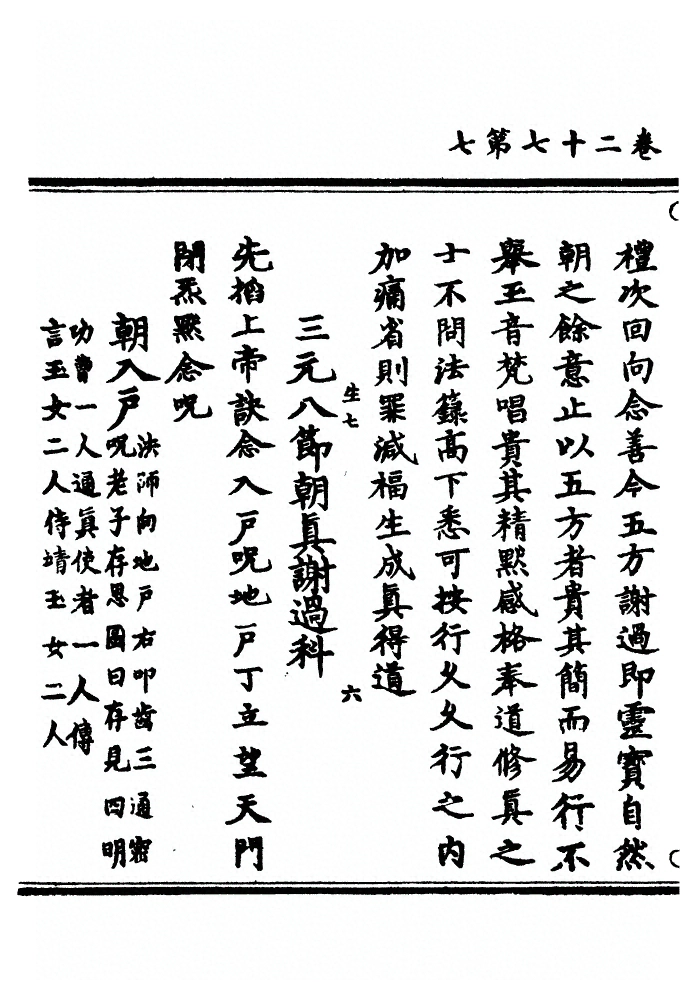 卷二十七第七
禮次回向念善今五方謝過即靈寶自然
朝之餘意止以五方者貴其簡而易行不
舉玉音梵唱貴其精默感格奉道修眞之
士不問法籙高下悉可按行久久行之内
加痛省則罪減福生成眞得道
生七 六
三元八節朝眞謝過科
先掐上帝訣念入戸呪地戸丁立望天門
閉炁默念呪
朝入戸
決師向地戸右叩齒三通密
呪老子存思圖曰存見四明
功曹一人通眞使者一人傳
言玉女二人侍靖玉女二人